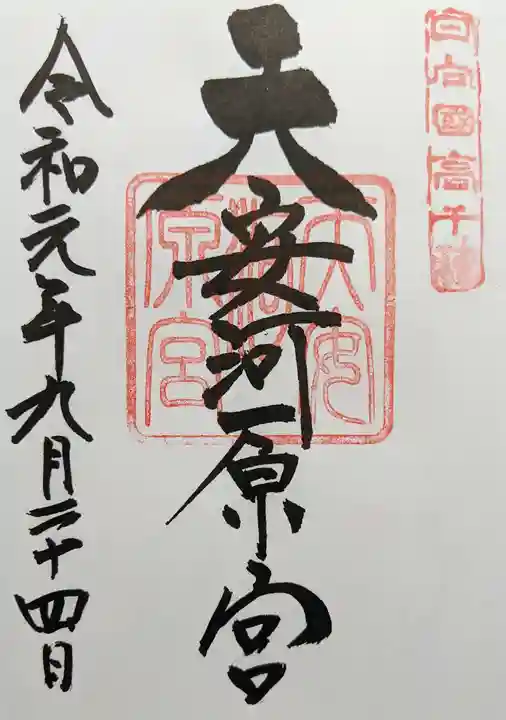 日向國高千穂
天安河原宮
天安河原宮
令和元年九月二十四日